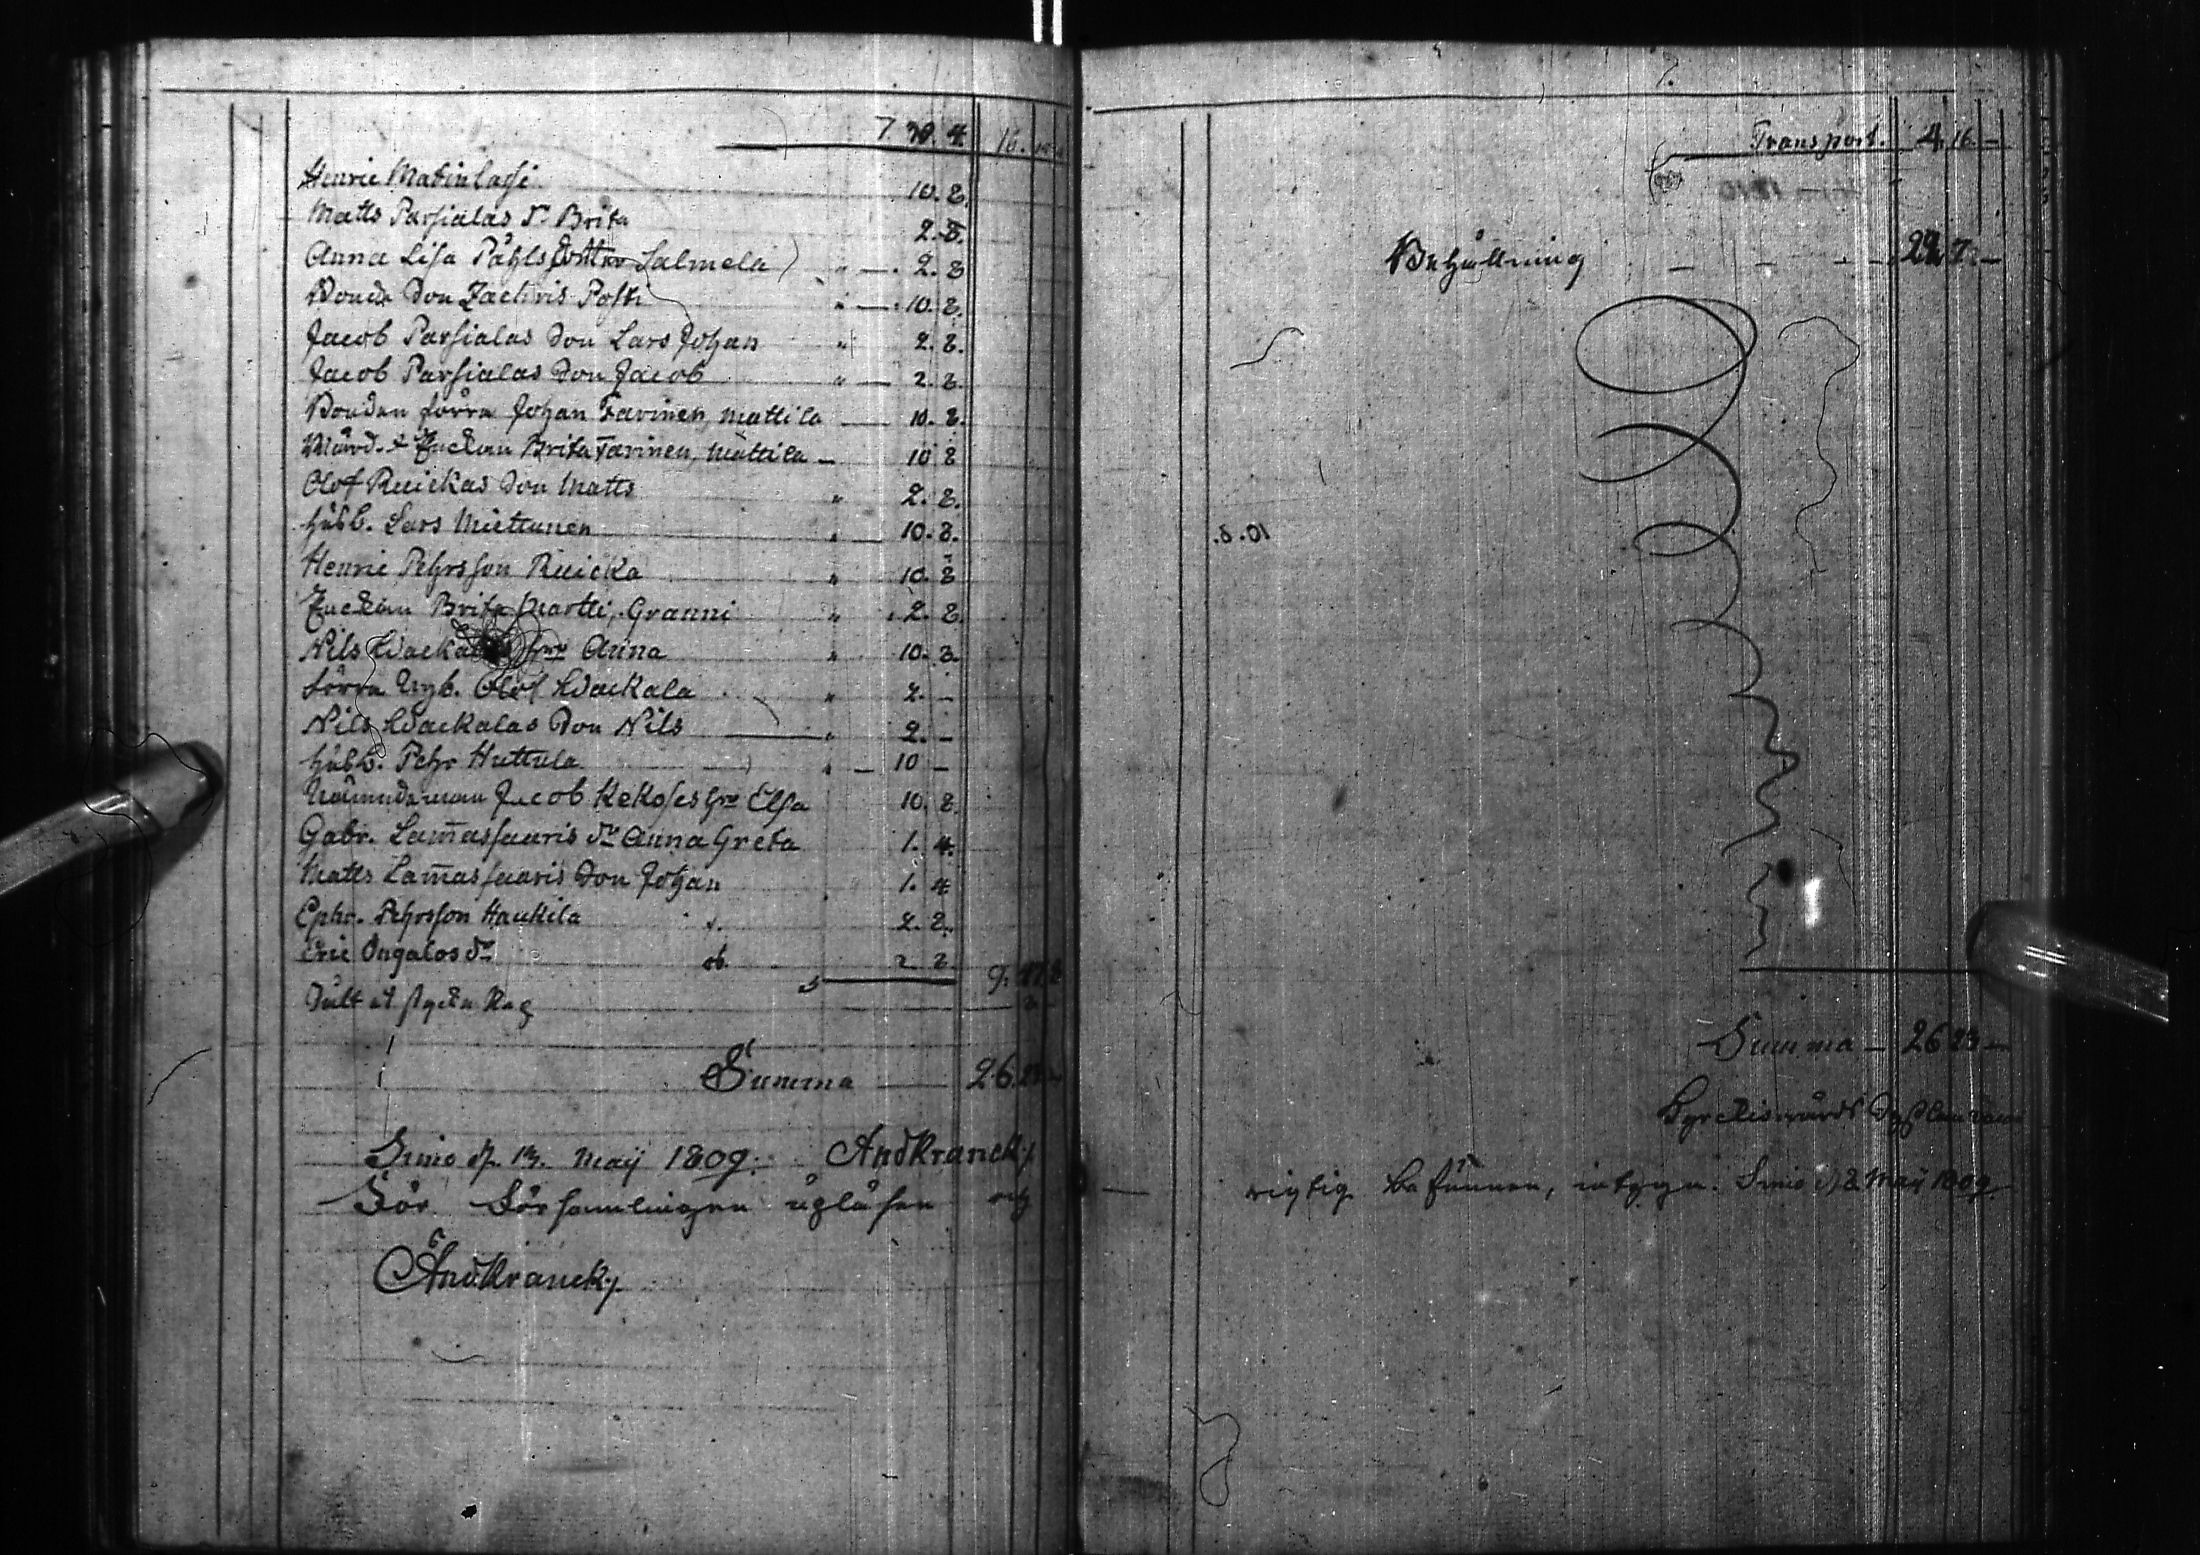 7. 30. 4. 16.
Henric Matinlassi 10. 8.
Matts Parsialas dr Brita 2. 8.
Anna Lisa Påhlsdotter Salmela " — 2. 8
Bonde Son Zachris Posti " — 10. 8.
Jacob Parsialas Son Lars Johan " 2. 8.
Jacob Parsialas Son Jacob " — 2. 8.
Bonden förra Johan Tavinen, Mattila — 10. 8.
Enckan Brita Tavinen, Mattila — 10 8
Olof Ruickas Son Matts " 2. 8.
husb. Lars Miettunen " 10. 8.
Henric Pehrsson Ruicka " 10. 8
Enckan Brita Martti, Granni " 2. 8.
Nils Anna " 10. 8.
förra Nyb. Olof Wackala " 2. —
Nils Wackalas Son Nils " 2. —
husb. Pehr Huttula " — 10 —
Nämndeman Jacob Kekoses hru Elsa 10. 8
Gabr. Lam̄assaaris dr Anna Greta 1. 4.
Matts Lam̄assaaris Son Johan 1. 4
Ephr. Pehrsson Haukila 2. 8.
Eric Ongalos dr 2 8 9.
Sult at stycka
Summa — 26.
Simo d. 13. Maij 1809. AndKranck
För Församlingen upläsen och
AndKranck
Transport. 4. 16. —
Behållning — — — 22 7. —
10. 8.
Summa — 26 23 —
Kyrckiowärds
rigtig befunnen, intygn. Simo d. Maij 1809.